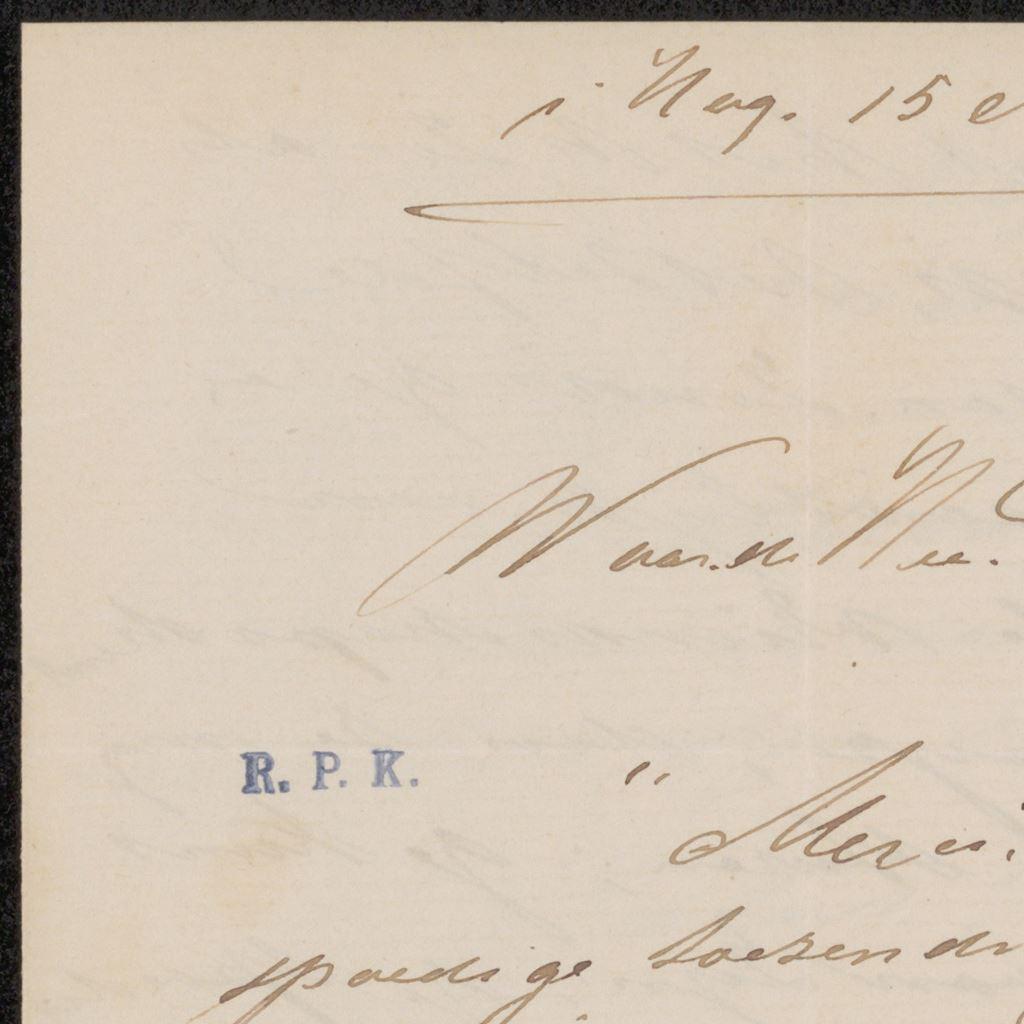 's Hag. 15
Waarde Hee.
R. P. K.
" Merci.
spoedige toezendi